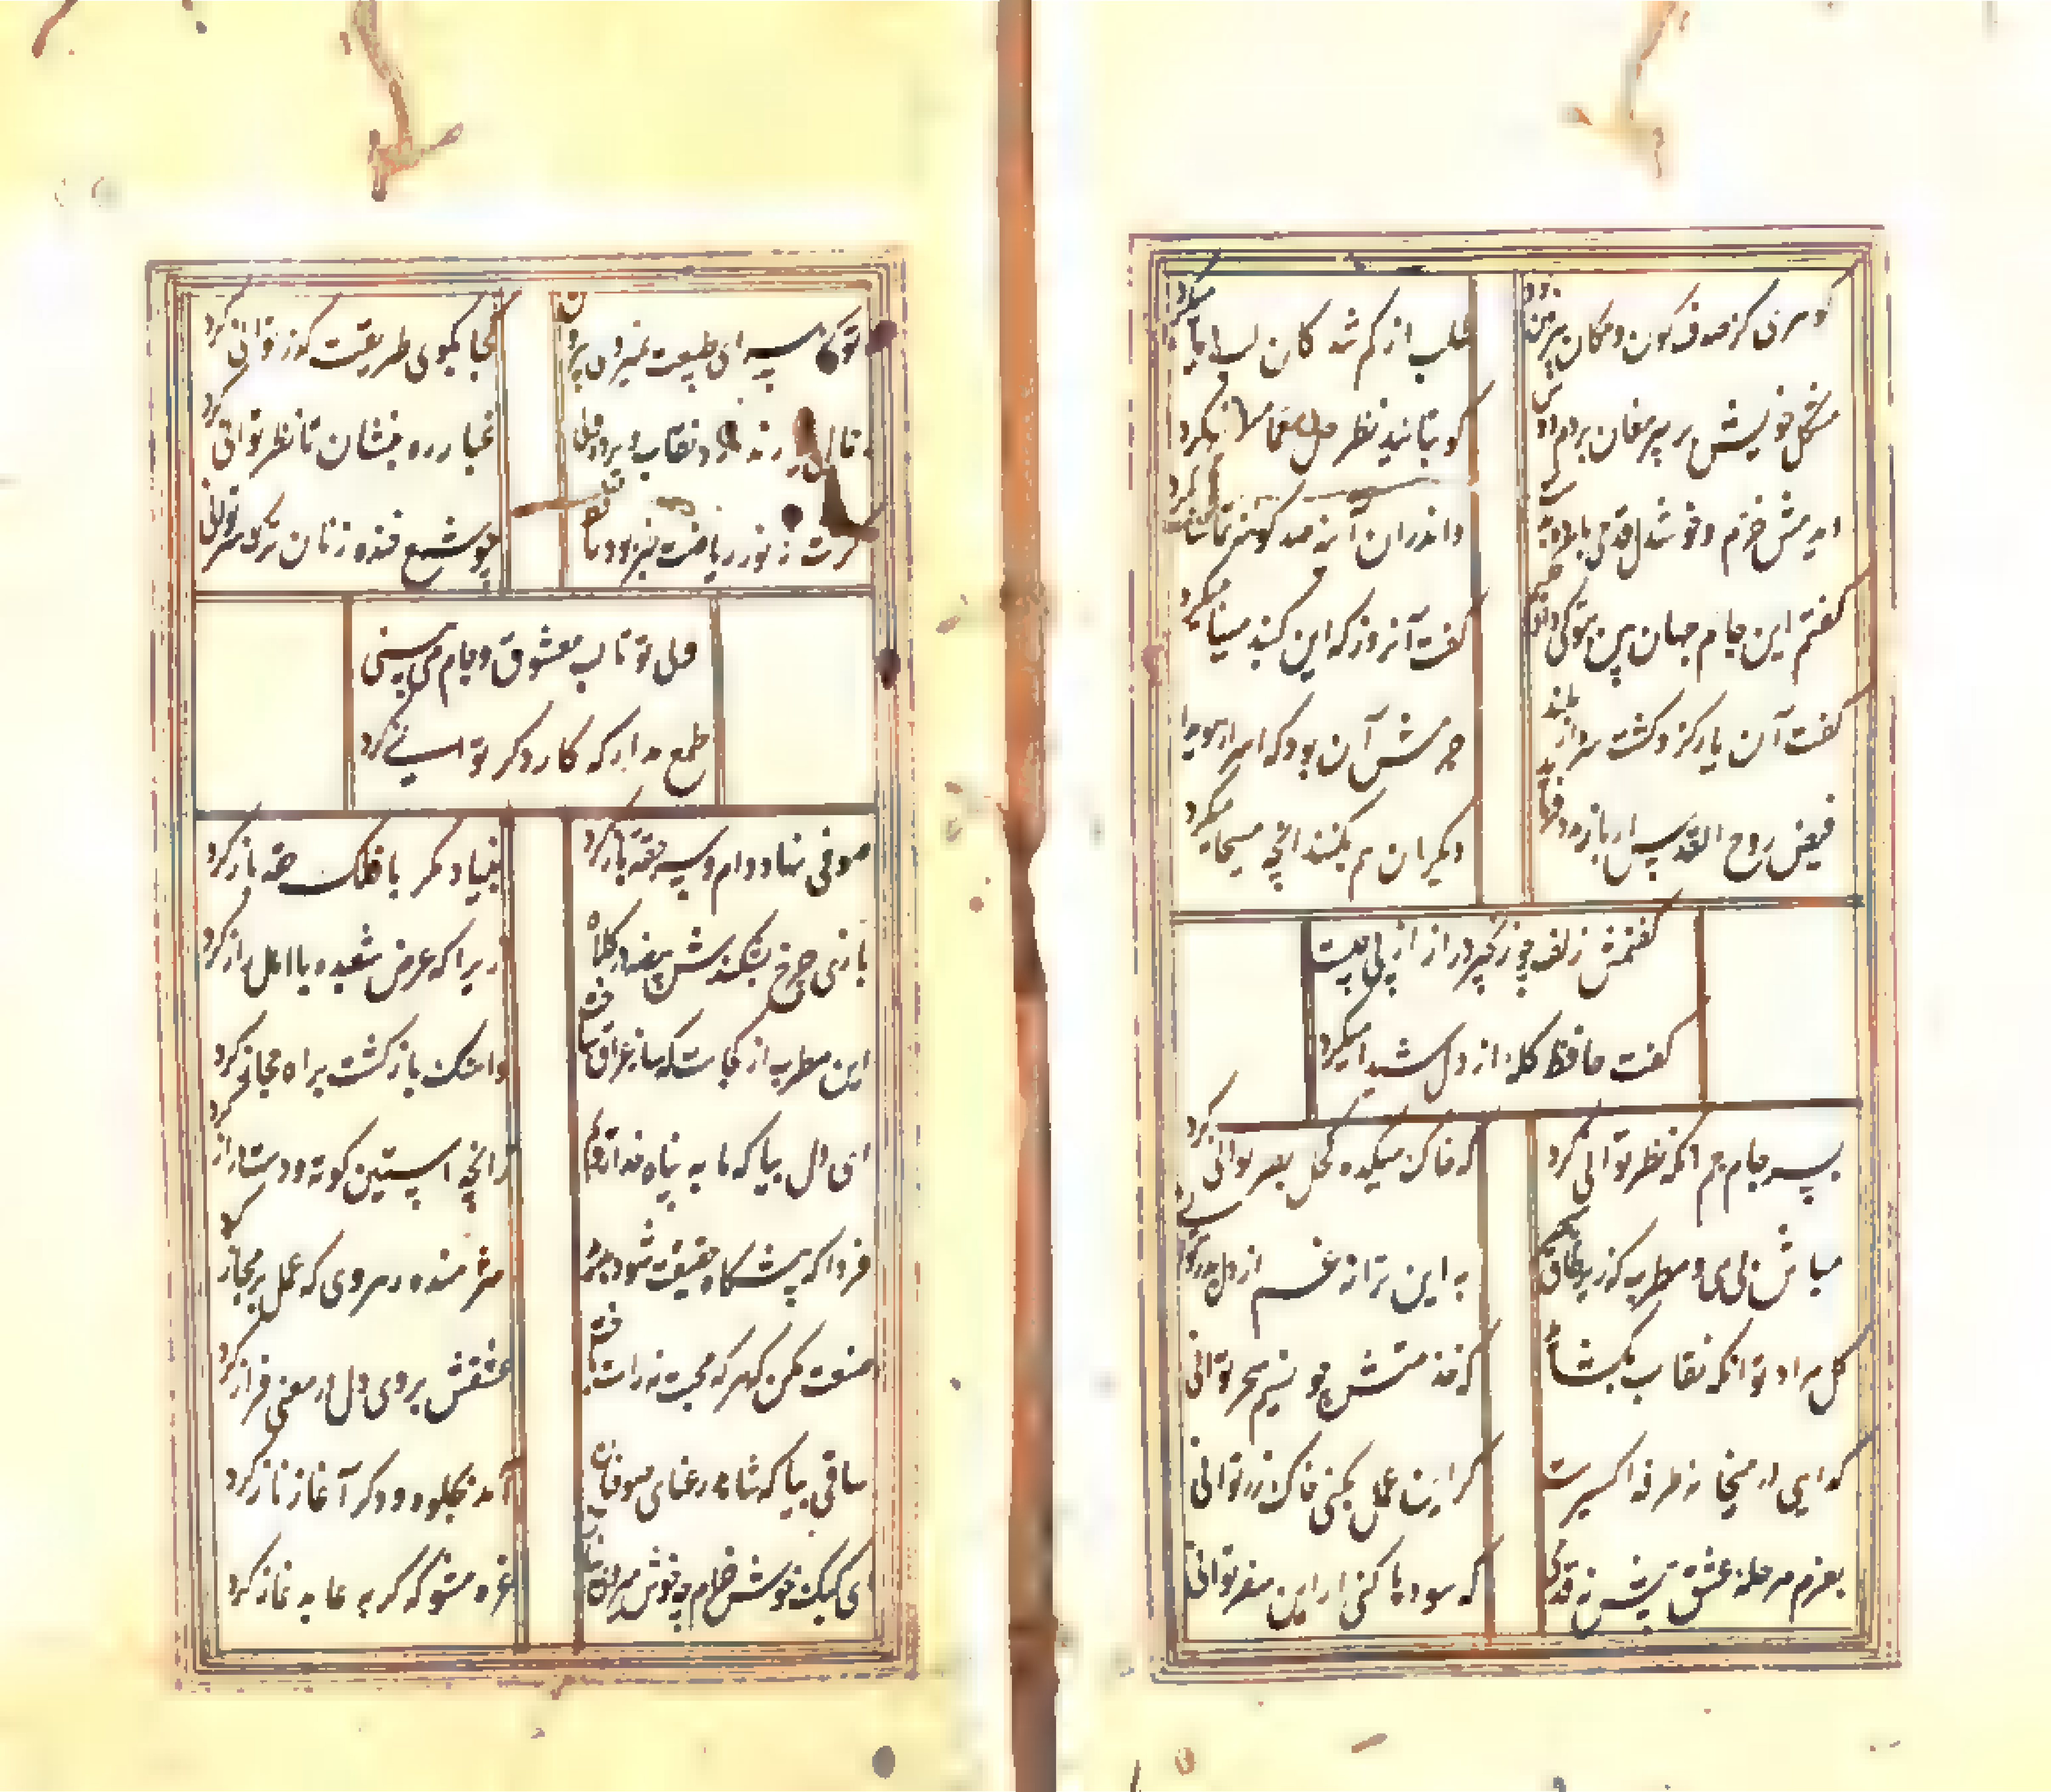 گوهری کز صدف کون و مکان بیرون بود
طلب از گم شدگان لب دریا میکرد
مشکل خویش بر پیر مغان بردم دوش
کو بتائید نظر حل معما میکرد
دیدمش خرم و خوشدل قدحی باده بدست
واندران آینه صد گونه تماشا میکرد
گفتم این جام جهان بین بتو کی داد حکیم
گفت آنروز که این گنبد مینا میکرد
گفت آن یار کزو گشت سر دار بلند
جرمش آن بود که اسرار هویدا میکرد
فیض روح القدس ار باز مدد فرماید
دیگران هم بکنند آنچه مسیحا میکرد
گفتمش زلف چو زنجیر دراز از پی چیست
گفت حافظ گله از دل شیدا میکرد
بسر جام جم آنگه نظر توانی کرد
که خاک میکده کحل بصر توانی کرد
مباش بی می و مطرب که زیر طاق
به این ترانه غم از دل بدر توانی کرد
گل مراد تو آنگه نقاب بگشاید
که خدمتش چو نسیم سحر توانی
گدایی در میخانه طرفه اکسیرست
گر این عمل بکنی خاک زر توانی
بعزم مرحله عشق پیش نه قدمی
که سودها کنی ار این سفر توانی
تو کز سرای طبیعت نمیروی بیرون
کجا بکوی طریقت گذر توانی کرد
جمال یار ندارد نقاب و پرده ولی
غبار ره بنشان تا نظر توانی کرد
گرت ز نور ریاضت خبر بود حافظ
چو شمع خنده زنان ترک سر توانی
ولی تو تا لب معشوق و جام می بینی
طمع مدار که کار دگر توانی کرد
صوفی نهاد دام و سر حقه باز کرد
بنیاد مکر با فلک حقه باز کرد
بازی چرخ بشکندش بیضه در کلاه
زیرا که عرض شعبده با اهل راز کرد
این مطرب از کجاست که ساز عراق ساخت
واهنگ بازگشت براه حجاز کرد
ای دل بیا که ما به پناه خدا رویم
زانچه آستین کوته و دست دراز کرد
فردا که پیشگاه حقیقت شود پدید
شرمنده رهروی که عمل بر مجاز کرد
صنعت مکن که هر که محبت نه راست باخت
عشقش بروی دل در معنی فراز کرد
ساقی بیا که شاهد رعنای صوفیان
آمد بجلوه و دگر آغاز ناز کرد
ای کبک خوش خرام چه خوش میروی بناز
غره مشو که گربه عابد نماز کرد